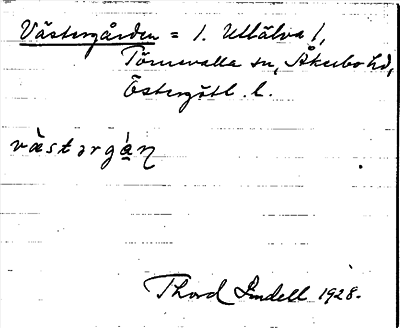 Västergården = 1. Uthälva /,
Törnevalla sn, Åkerbo hd,
Östergötl. l.
västərgán
Thord Lindell 1928.